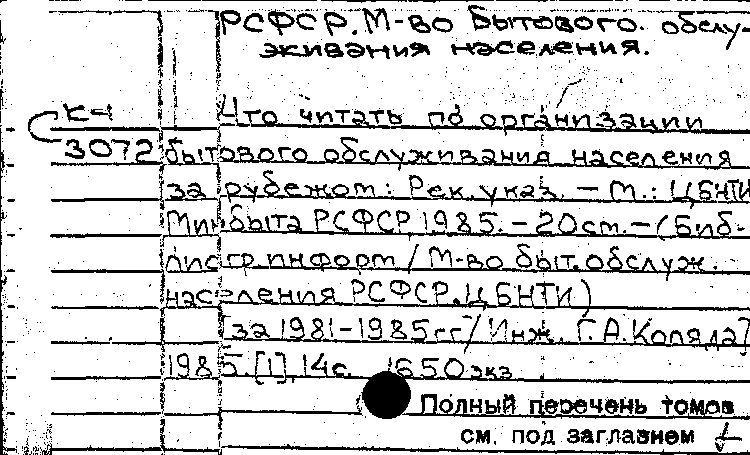 РСФСР. М-во бытового. обслу-
живания населения.
К4 Что читать по организации
3072 бытового обслуживания населения
за рубежом: Рек. указ. – М.: ЦБНТИ
Минбыта РСФСР, 1985. – 20см. – (Биб-
лиогр. информ / М-во быт. обслуж.
населения РСФСР. ЦБНТИ)
[за 1981-1985гг / Инж. Г.А. Коляда]
1985. [1], 14с. 1650экз
Полный перечень томов
см. под заглавием